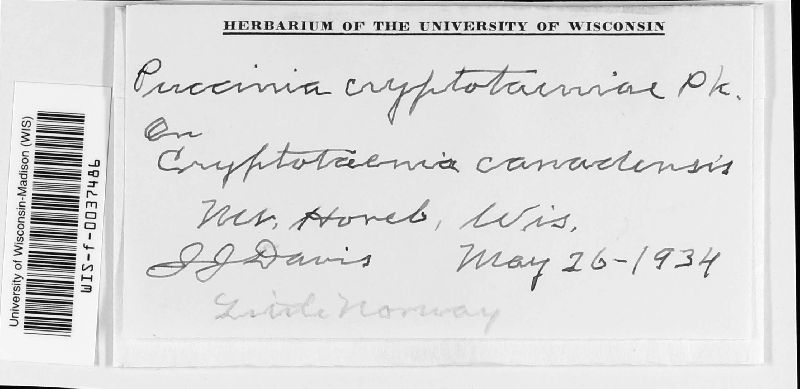 HERBARIUM OF THE UNIVERSITY OF WISCONSIN
Puccinia cryptotaeniae Pk.
On
Cryptotaenia canadensis
Mt. Horeb, Wis.
J J Davis May 26-1934
Little Norway
University of Wisconsin-Madison (WIS)
WIS-f-0037486